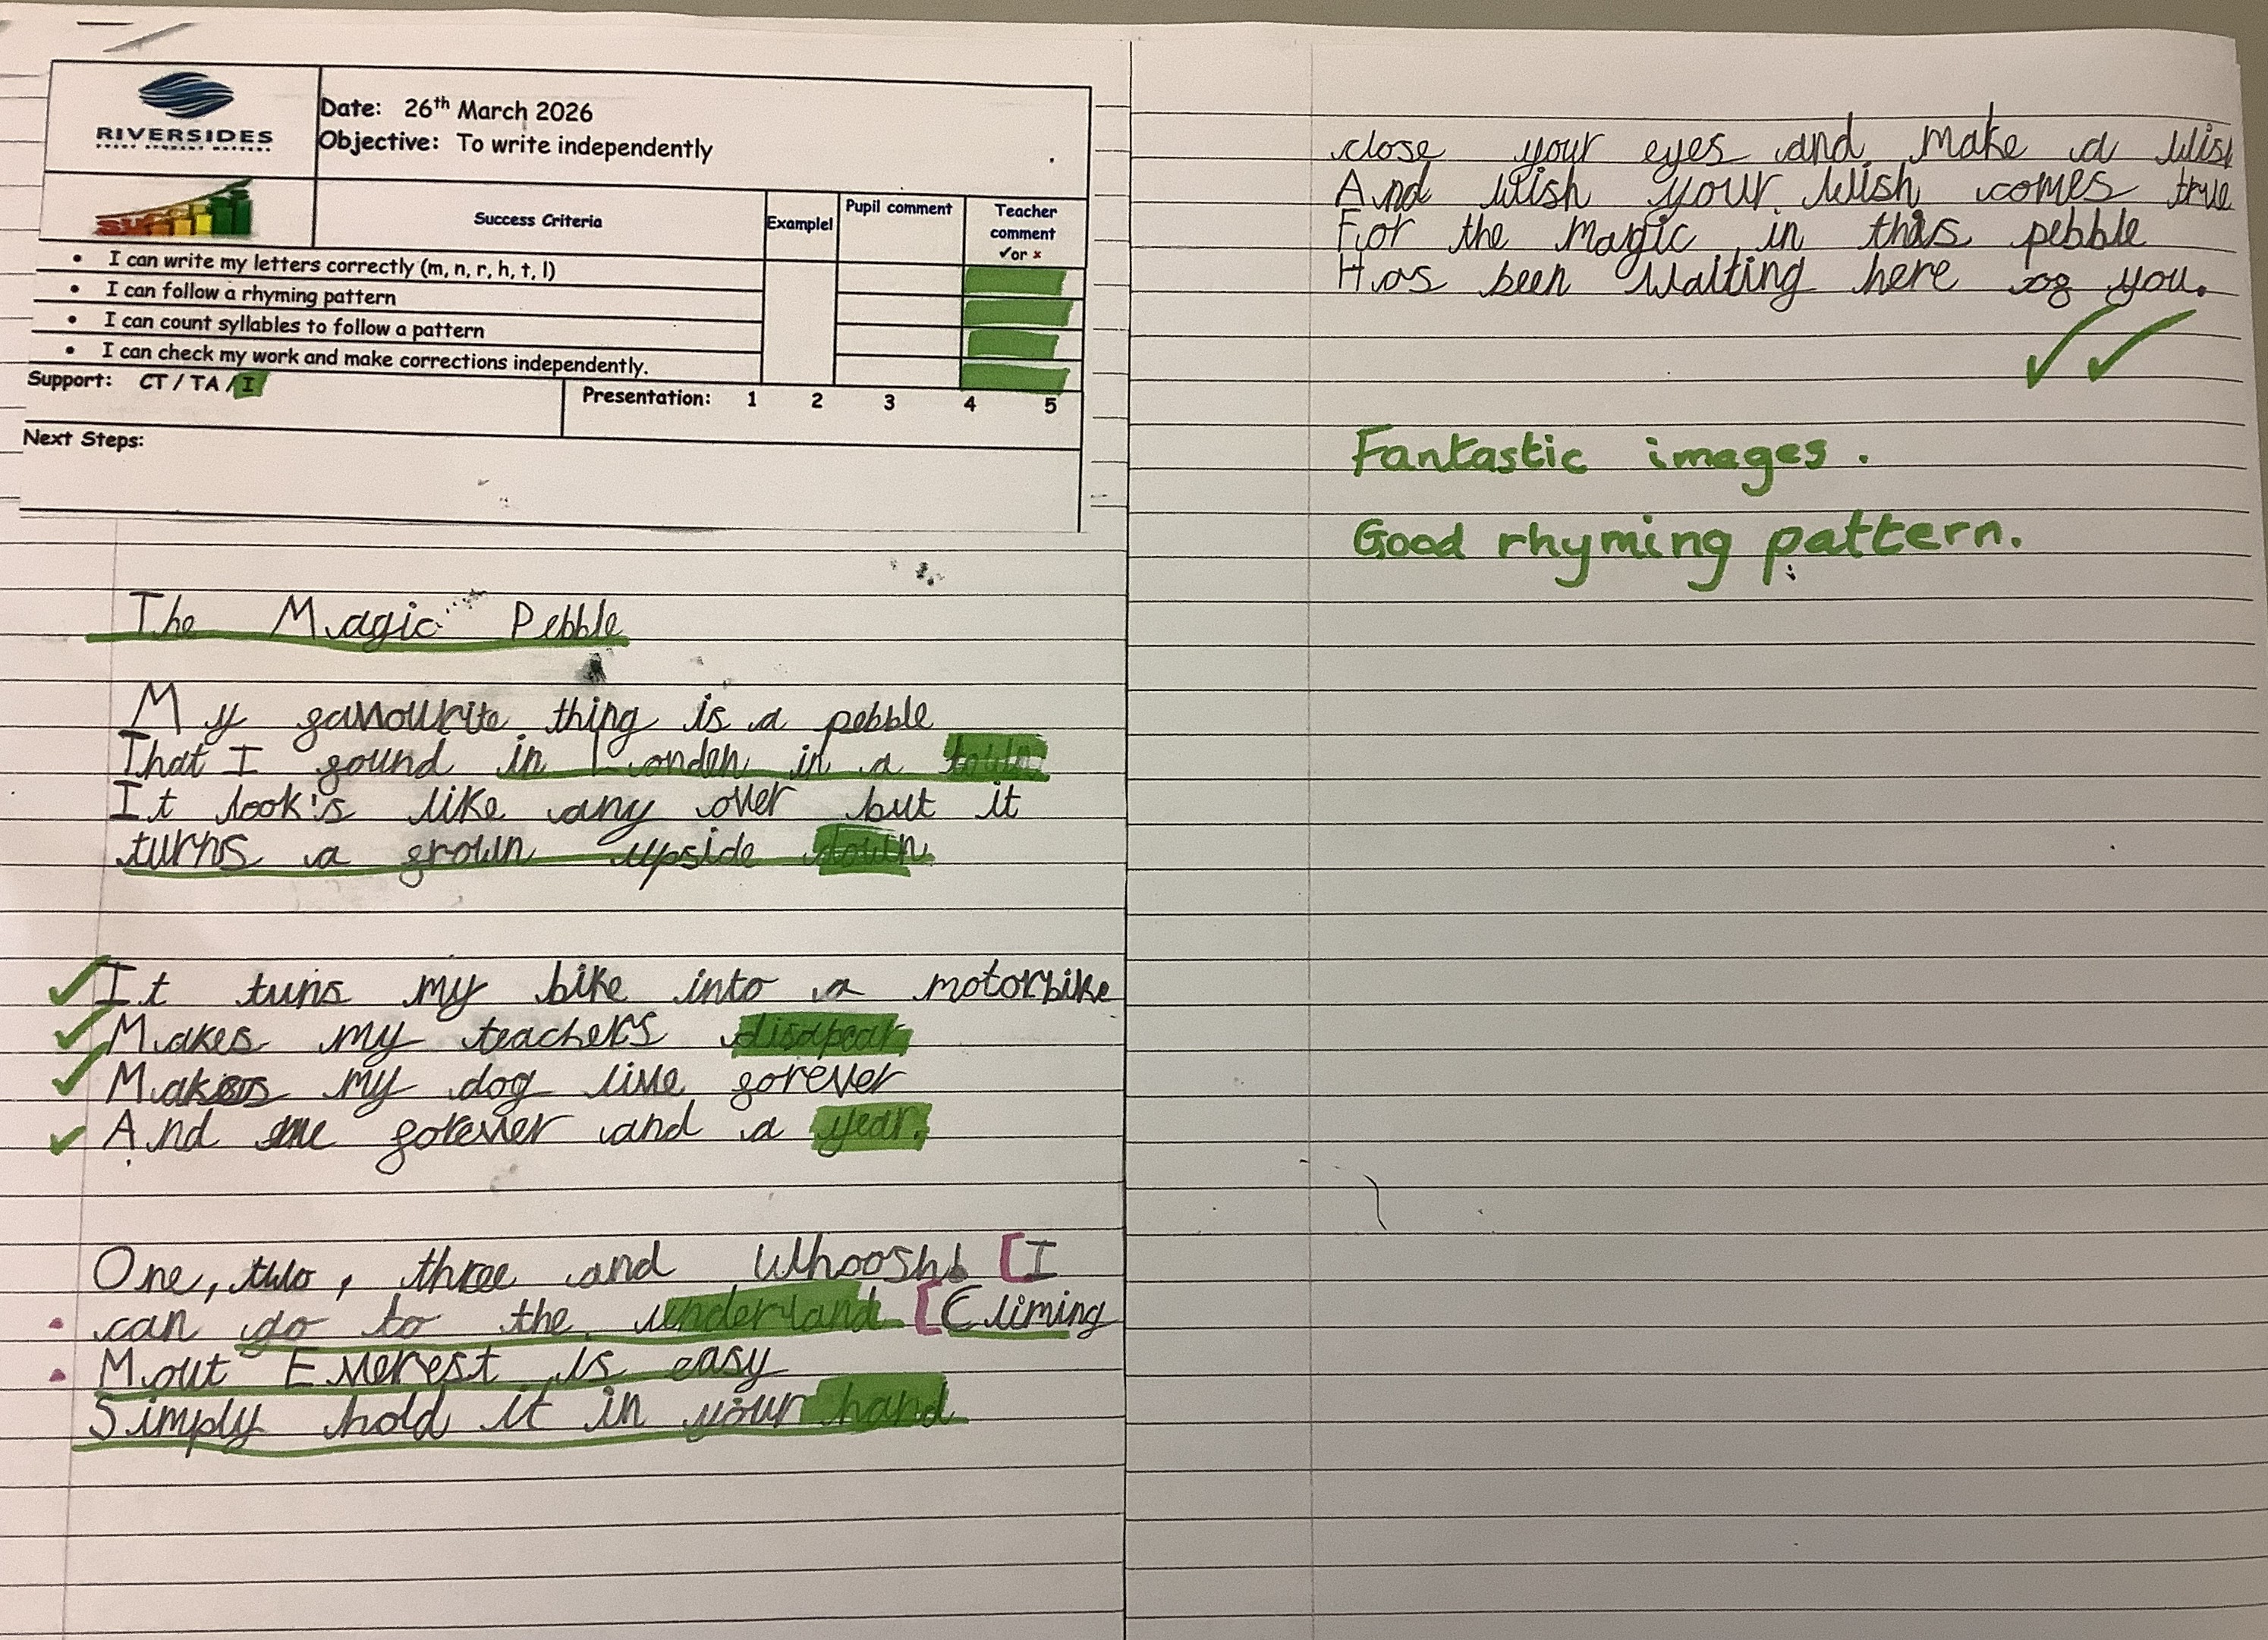 RIVERSIDES
Date: 26th March 2026
Objective: To write independently
Success Criteria
Example!
Pupil comment
Teacher comment
✓or ×
• I can write my letters correctly (m, n, r, h, t, l)
• I can follow a rhyming pattern
• I can count syllables to follow a pattern
• I can check my work and make corrections independently.
Support: CT / TA / I
Presentation: 1 2 3 4 5
Next Steps:
The Magic Pebble
My favourite thing is a pebble
That I found in Londen in a town
It look's like any over but it
turns a frown upside down.
It turns my bike into a motorbike
Makes my teachers disapear
Makes my dog live forever
And me forever and a year.
One, two, three and Whoosh! [I
can go to the underland [Climing
Mout Everest is easy
Simply hold it in your hand
close your eyes and make a wish
And wish your wish comes true
For the magic in this pebble
Has been waiting here for you.
Fantastic images.
Good rhyming pattern.